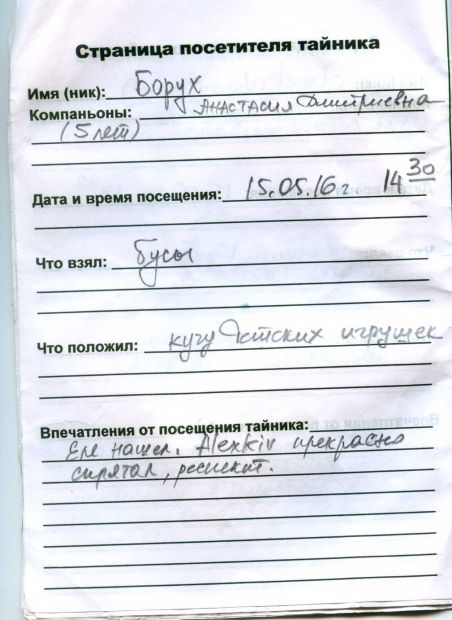 Страница посетителя тайника
Имя (ник): Борух
Компаньоны: Анастасия Дмитриевна
(5 лет)
Дата и время посещения: 15.05.16г. 14 30
Что взял: Бусы
Что положил: кучу детских игрушек
Впечатления от посещения тайника:
Еле нашел. Alexkiv прекрасно
спрятал, респект.